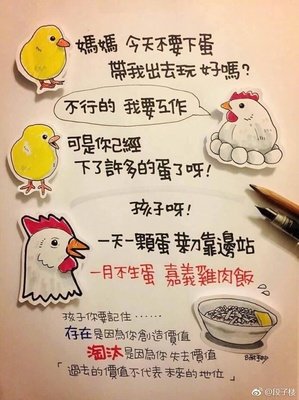 媽媽 今天不要下蛋
帶我出去玩 好嗎?
不行的 我要工作
可是你已經
下了許多的蛋了呀!
孩子呀!
一天一顆蛋 菜刀靠邊站
一月不生蛋 嘉義雞肉飯
孩子你要記住……
存在是因為你創造價值
淘汰是因為你失去價值
「過去的價值不代表未來的地位」
@段子楼